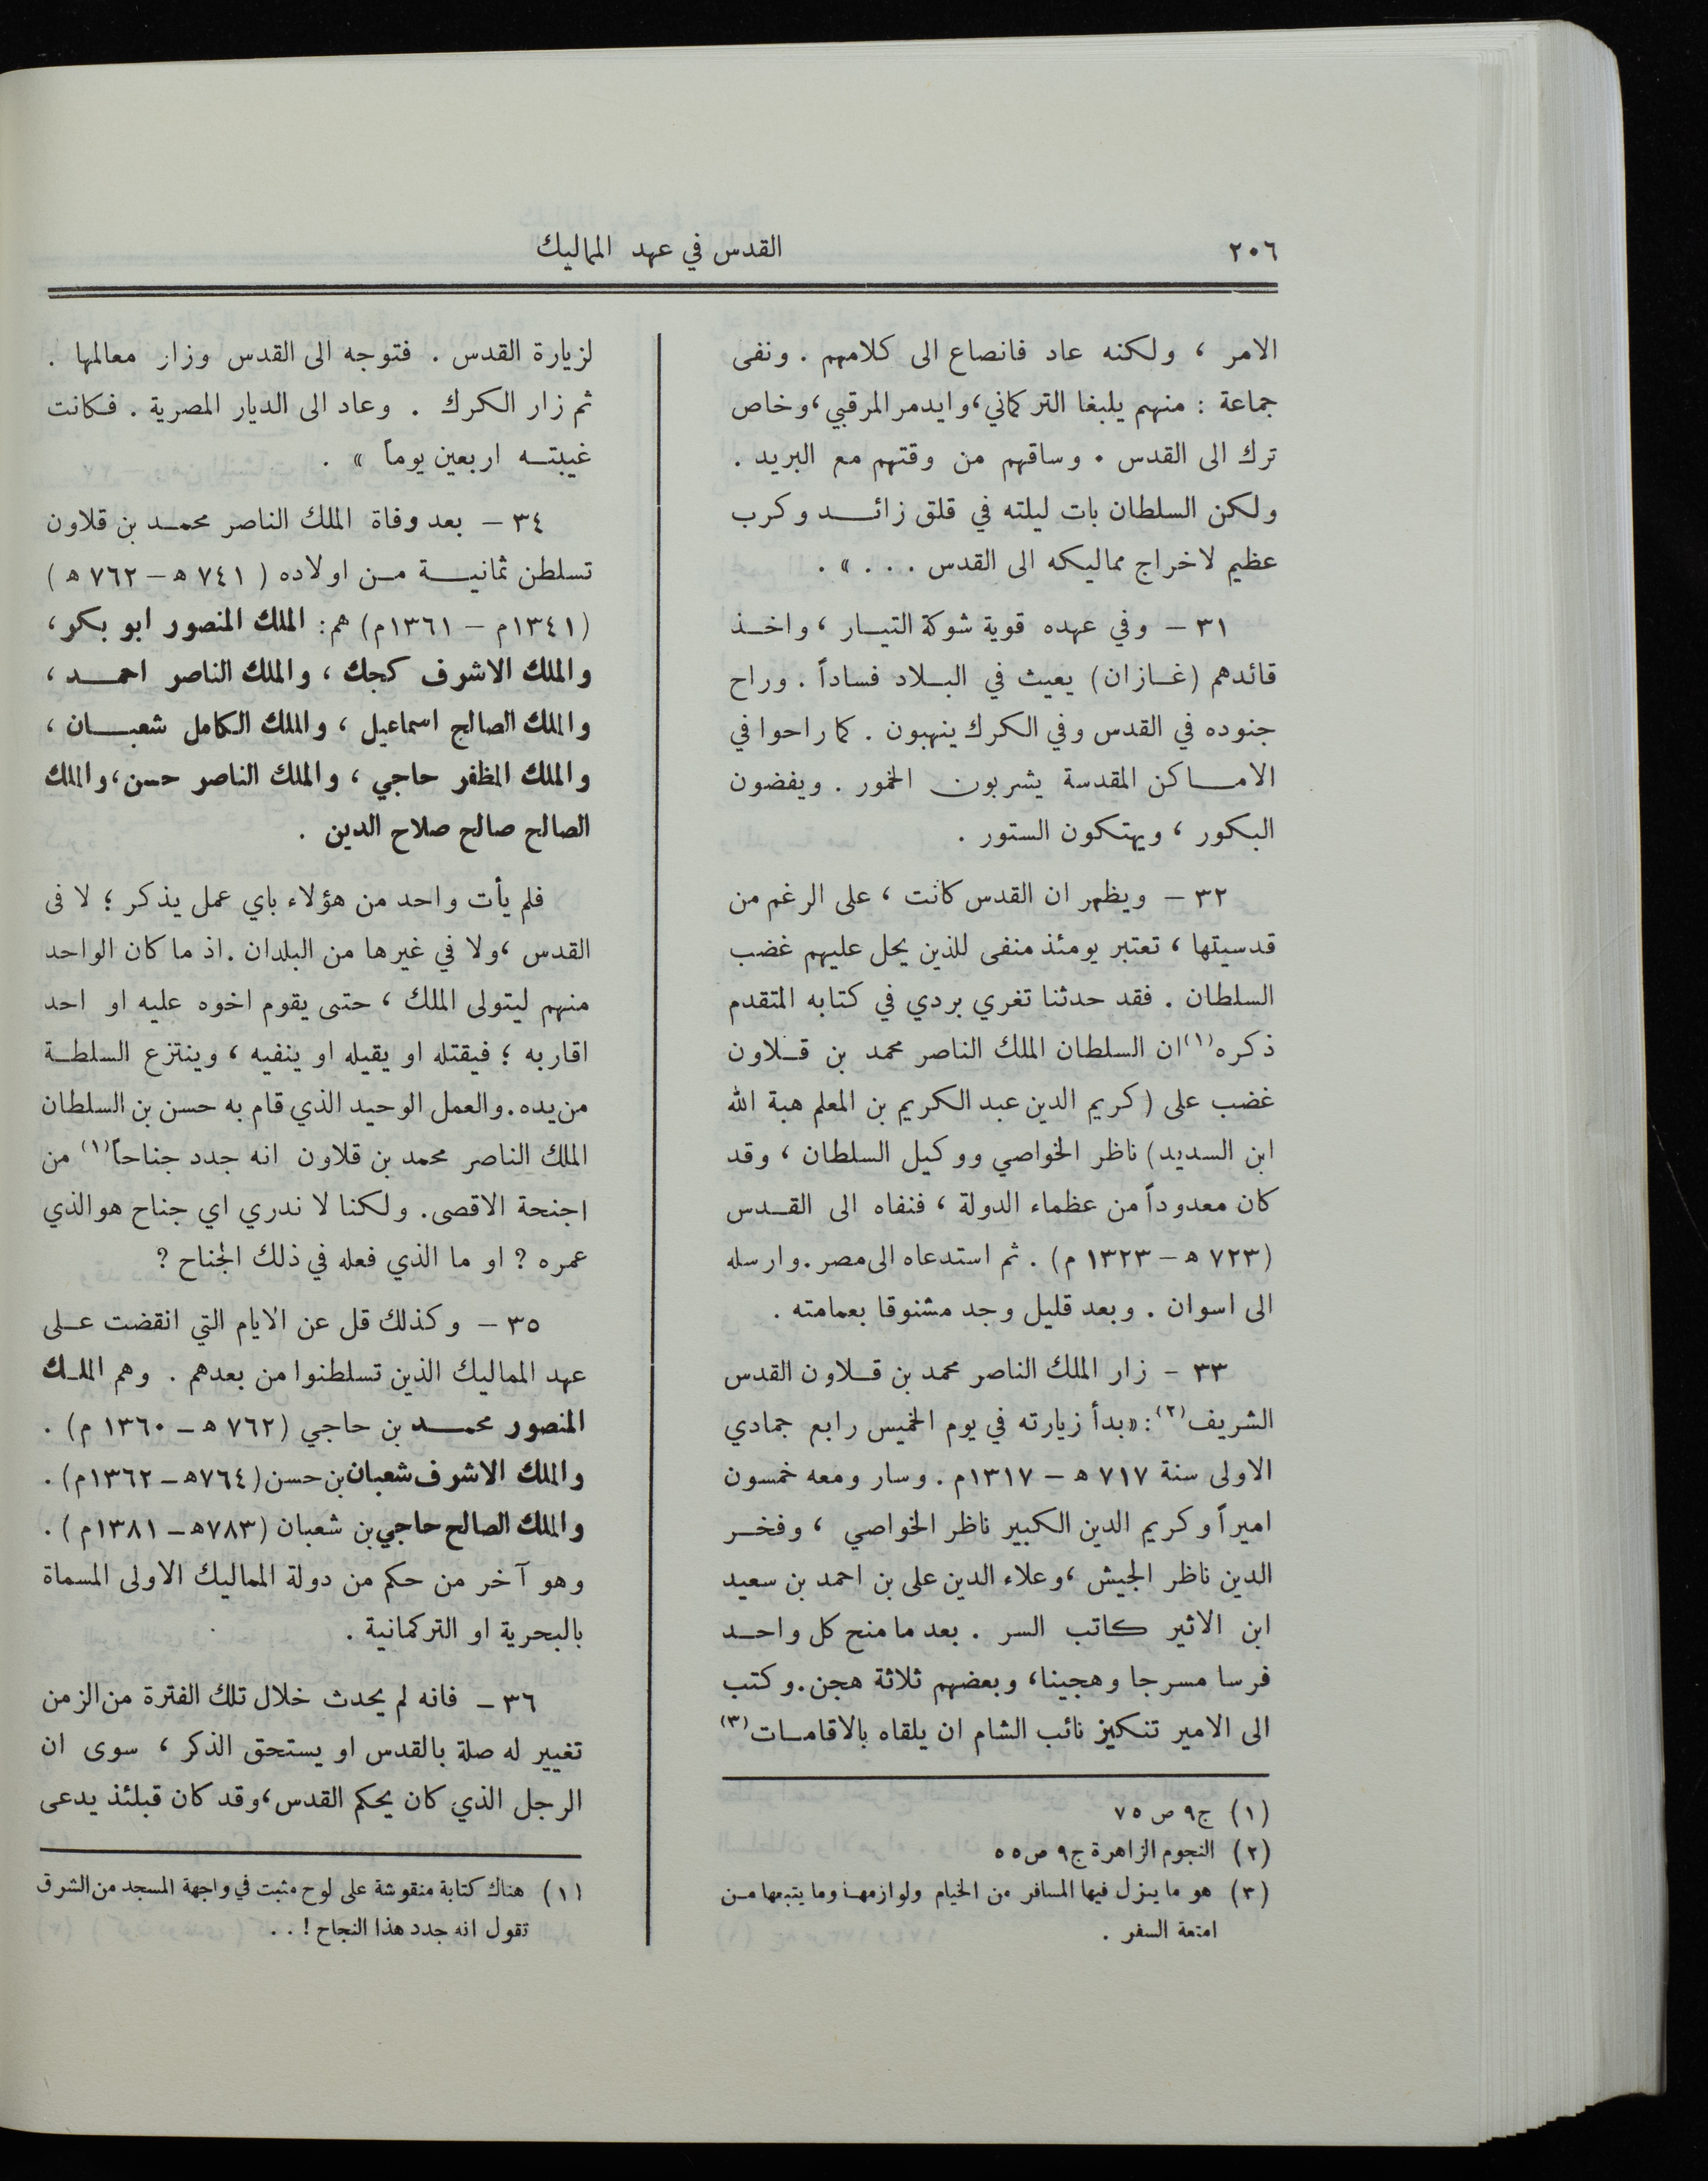 ٢٠٦
القدس في عهد المماليك
الامر ، ولكنه عاد فانصاع الى كلامهم . ونفى
جماعة : منهم يلبغا التركماني ، وايدمر المرقبي ، وخاص
ترك الى القدس . وساقهم من وقتهم مع البريد .
ولكن السلطان بات ليلته في قلق زائد وكرب
عظيم لاخراج مماليكه الى القدس . . . » .
٣١ – وفي عهده قوية شوكة التيار ، واخذ
قائدهم (غازان) يعيث في البلاد فساداً . وراح
جنوده في القدس وفي الكرك ينهبون . كما راحوا في
الاماكن المقدسة يشربون الخمور . ويفضون
البكور ، ويهتكون الستور .
٣٢ – ويظهر ان القدس كانت ، على الرغم من
قدسيتها ، تعتبر يومئذ منفى للذين يحل عليهم غضب
السلطان . فقد حدثنا تغري بردي في كتابه المتقدم
ذكره (١) ان السلطان الملك الناصر محمد بن قلاون
غضب على (كريم الدين عبد الكريم بن المعلم هبة الله
ابن السديد) ناظر الخواصي ووكيل السلطان ، وقد
كان معدوداً من عظماء الدولة ، فنفاه الى القدس
(٧٢٣ ه – ١٣٢٣ م) . ثم استدعاه الى مصر . وارسله
الى اسوان . وبعد قليل وجد مشنوقا بعمامته .
٣٣ – زار الملك الناصر محمد بن قلاون القدس
الشريف (٢) : «بدأ زيارته في يوم الخميس رابع جمادي
الاولى سنة ٧١٧ ه – ١٣١٧م . وسار ومعه خمسون
اميراً وكريم الدين الكبير ناظر الخواصي ، وفخر
الدين ناظر الجيش ، وعلاء الدين على بن احمد بن سعيد
ابن الاثير كاتب السر . بعد ما منح كل واحد
فرسا مسرجا وهجينا ، وبعضهم ثلاثة هجن . وكتب
الى الامير تنكيز نائب الشام ان يلقاه بالاقامات (٣)
(١) ج٩ ص ٧٥
(٢) النجوم الزاهرة ج٩ ص٥٥
(٣) هو ما ينزل فيها المسافر من الخيام ولوازمها وما يتبعها من
امتعة السفر .
لزيارة القدس . فتوجه الى القدس وزار معالمها .
ثم زار الكرك . وعاد الى الديار المصرية . فكانت
غيبته اربعين يوماً » .
٣٤ – بعد وفاة الملك الناصر محمد بن قلاون
تسلطن ثمانية من اولاده ( ٧٤١ ه – ٧٦٢ ه )
(١٣٤١م – ١٣٦١م) هم : الملك المنصور ابو بكر ،
والملك الاشرف كجك ، والملك الناصر احمد ،
والملك الصالح اسماعيل ، والملك الكامل شعبان ،
والملك المظفر حاجي ، والملك الناصر حسن ، والملك
الصالح صالح صلاح الدين .
فلم يأت واحد من هؤلاء باي عمل يذكر ؛ لا فى
القدس ، ولا في غيرها من البلدان . اذ ما كان الواحد
منهم ليتولى الملك ، حتى يقوم اخوه عليه او احد
اقاربه ؛ فيقتله او يقيله او ينفيه ، وينتزع السلطة
من يده . والعمل الوحيد الذي قام به حسن بن السلطان
الملك الناصر محمد بن قلاون انه جدد جناحاً (١) من
اجنحة الاقصى . ولكنا لا ندري اي جناح هو الذي
عمره ؟ او ما الذي فعله في ذلك الجناح ؟
٣٥ – وكذلك قل عن الايام التي انقضت على
عهد المماليك الذين تسلطنوا من بعدهم . وهم الملك
المنصور محمد بن حاجي (٧٦٢ ه – ١٣٦٠ م) .
والملك الاشرف شعبان بن حسن (٧٦٤ه – ١٣٦٢م) .
والملك الصالح حاجي بن شعبان (٧٨٣ه – ١٣٨١م ) .
وهو آخر من حكم من دولة المماليك الاولى المسماة
بالبحرية او التركمانية .
٣٦ – فانه لم يحدث خلال تلك الفترة من الزمن
تغيير له صلة بالقدس او يستحق الذكر ، سوى ان
الرجل الذي كان يحكم القدس ، وقد كان قبلئذ يدعى
(١) هناك كتابة منقوشة على لوح مثبت في واجهة المسجد من الشرق
تقول انه جدد هذا النجاح ! . .